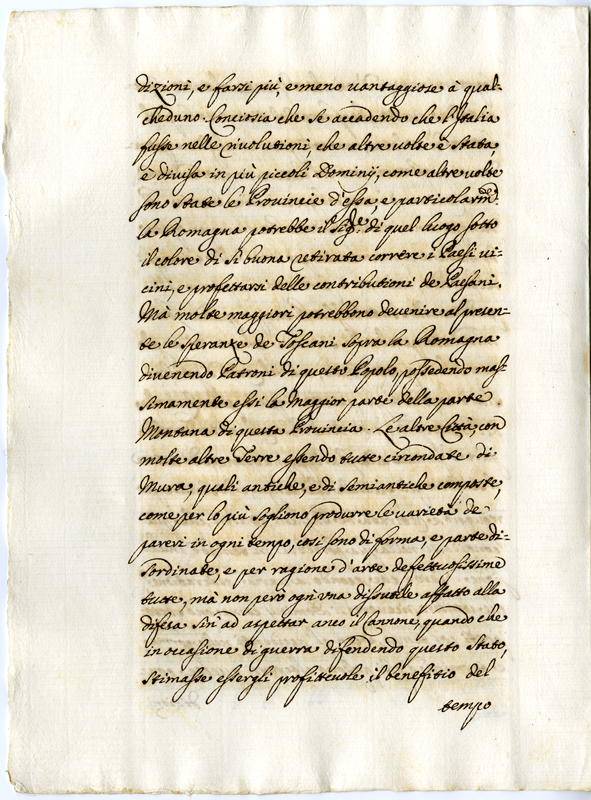 dizioni, e farsi più, e meno vantaggiose à qual-
cheduno. Conciosia che se accadendo che l'Italia
fusse nelle rivolutioni, che altre volte è stata
e divisa in più piccoli Dominij, come altre volte
sono state le Provincie d'essa, e particolarm.te
la Romagna potrebbe il Sig.re di quel luogo sotto
il colore di si buona retirata correre i Paesi vi-
cini, e profettarsi delle contributioni de Paesani.
Mà molte maggiori potrebbono devenire al presen-
te le speranze de Toscani sopra la Romagna
divenendo Patroni di questo Popolo, possedendo mas-
simamente essi la Maggior parte della parte
Montana di questa Provincia. Le altre Città, con
molte altre Terre essendo tutte circondate di
Mura, quali antiche, e di semiantiche composte,
come per lo più sogliono produrre le varietà de
pareri in ogni tempo, così sono di forma, e parte di-
sordinate, e per ragione d'arte defettuosissime
tutte, mà non però ogn'una disutile affatto alla
difesa sin' ad aspettar anco il Cannone, quando che
in occasione di guerra difendendo questo Stato,
stimasse essergli profittevole il benefitio del
tempo